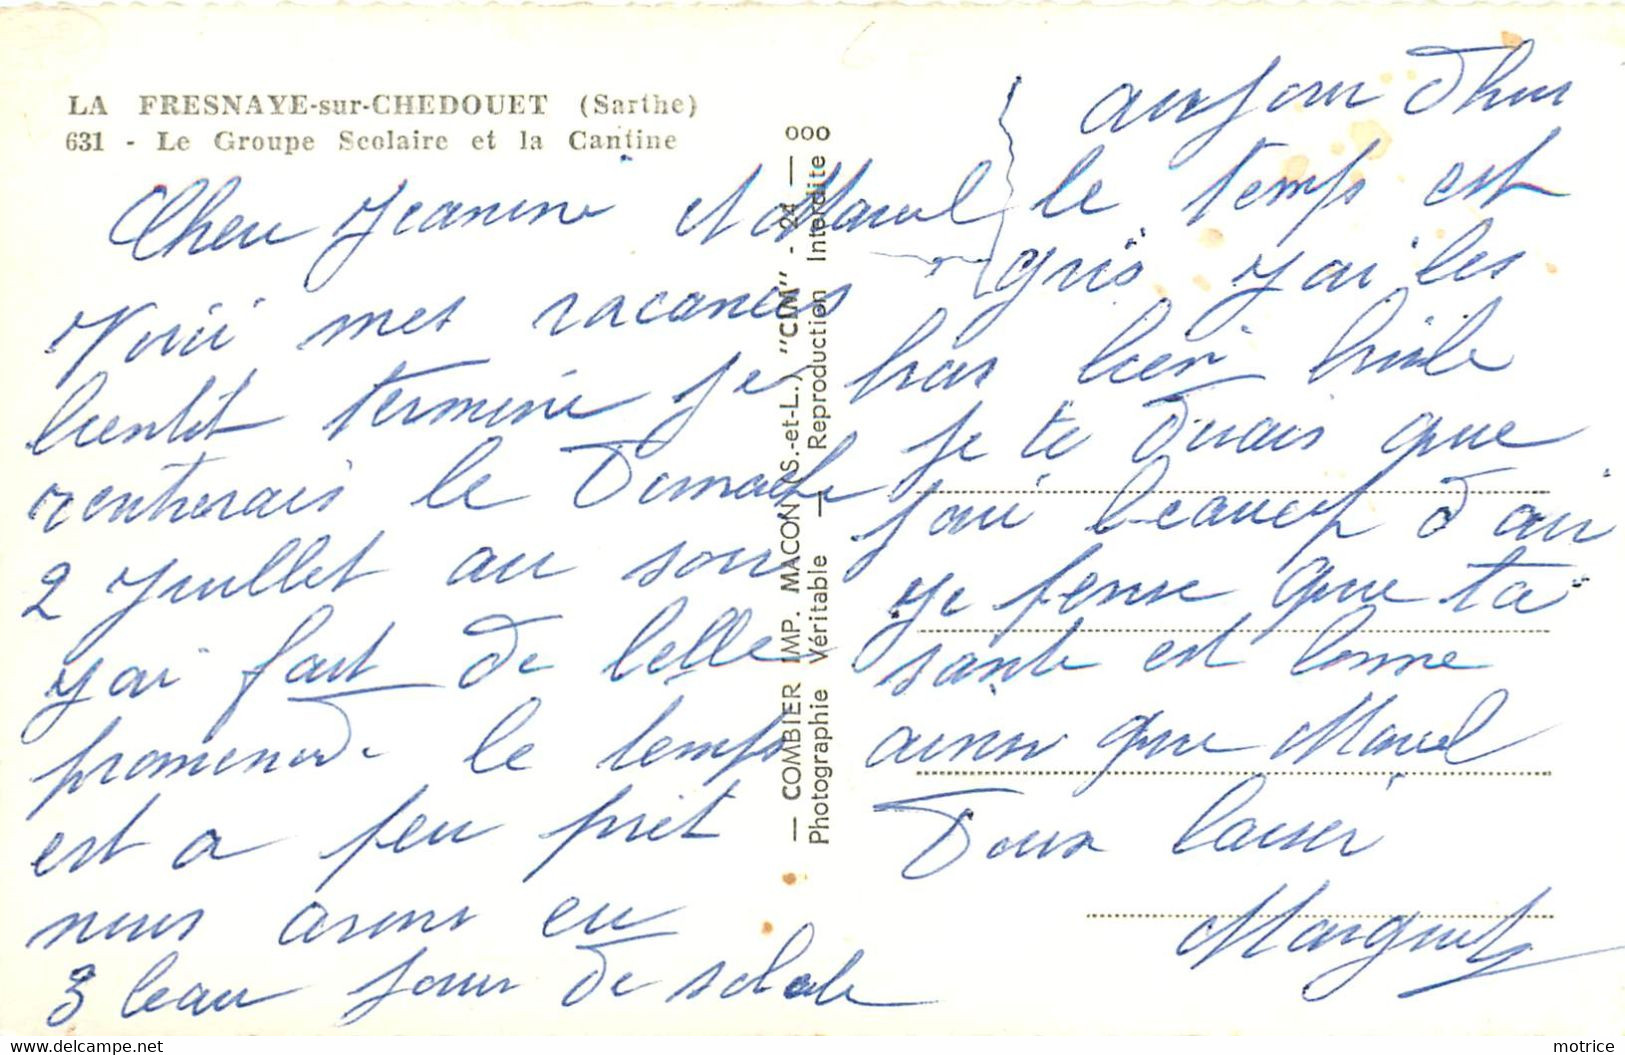 LA FRESNAYE-sur-CHEDOUET (Sarthe)
631 - Le Groupe Scolaire et la Cantine
Cher Jeanine et Marcel
Voici mes vacances
bientot terminé je
rentrerais le Dimache
2 Juillet au soir
j'ai fait de belle
promenade le temps
est a peu pret
nous avons eu
3 beau jour de soleil
— COMBIER IMP. MACON (S.-et-L.) "CIM" - 24 — 000
Photographie Véritable — Reproduction Interdite
aujour d'hui
le temps est
gris j'ai les
bras bien brulé
je te dirais que
j'ai beaucup d'air
je pense que ta
santé est bonne
ainsi que Marcel
Doux baiser
Marguerite
motrice
delcampe.net